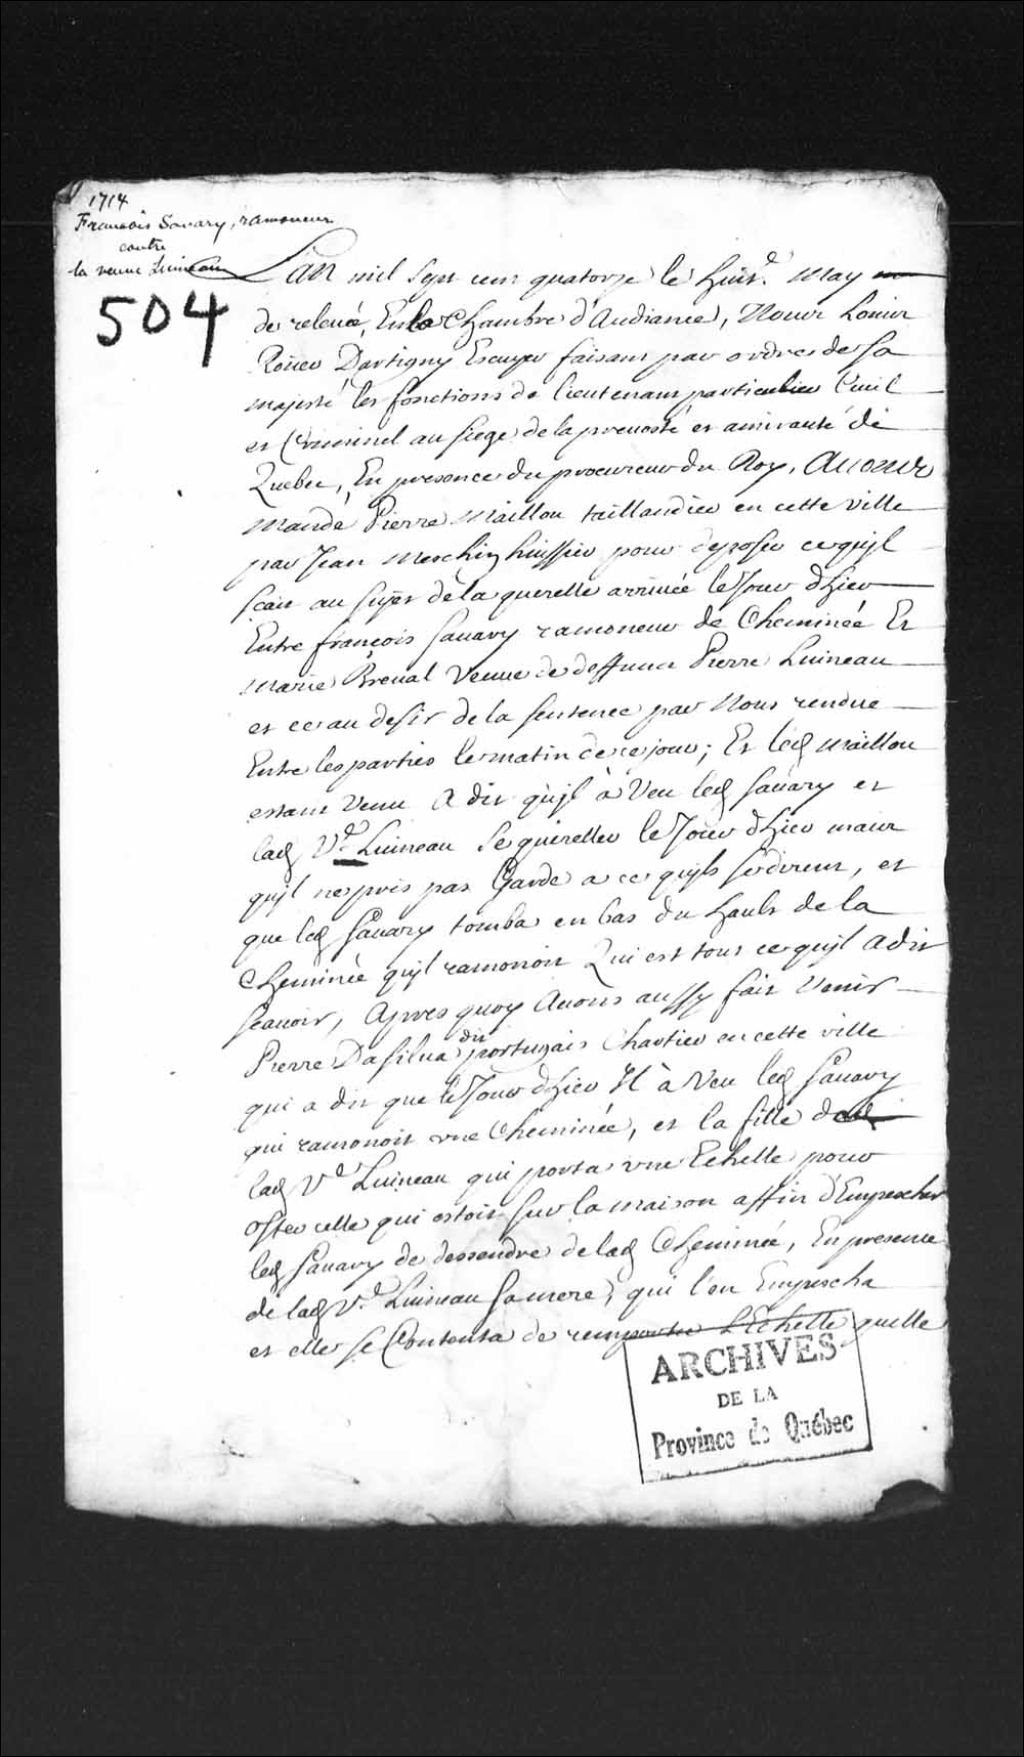 1714
Francois Savary, ramoneur
contre
la veuve Luineau
504
Lan mil sept cent quatorze le huit.e May
de relevée, En la Chambre d'Audiance, Nous Louis
Roüer Dartigny Escuyer faisant par ordres de Sa
majesté les fonctions de lieutenant particulier Civil
et Criminel au siege de la prevosté et amirauté de
Quebec, En presence du procureur du Roy, Avons
Mandé Pierre Maillou taillandier en cette ville
par Jean Meschin huissier pour deposer ce quil
scait au sujet de la querelle arrivée le Jour dhier
Entre françois Savary ramoneur de Cheminée Et
Marie Breval Veuve de deffunct Pierre Luineau
et ce au desir de la sentence par Nous rendue
Entre les parties le matin de ce jour; Et led Maillou
estant Venu A dit quil à Veu led Savary et
lad Ve Luineau se quereller le Jour dhier mais
quil ne prit pas Garde a ce quils se dirent, et
que led Savary tomba en bas du hault de la
Cheminée quil ramonoit Qui est tout ce quil a dit
scavoir, Apres quoy Avons aussy fait Venir
Pierre Dasilva dit portugais Chartier en cette ville
qui a dit que le Jour dhier Il à Veu led Savary
qui ramonoit une Cheminée, et la fille de
lad Ve Luineau qui porta une Echelle pour
oster celle qui estoit sur la maison affin d'Empescher
led Savary de dessendre de lad Cheminée, En presence
de lad Ve Luineau sa mere, qui l'en Empescha
et elle se Contenta de remporter L'Echelle quelle
ARCHIVES
DE LA
Province de Québec